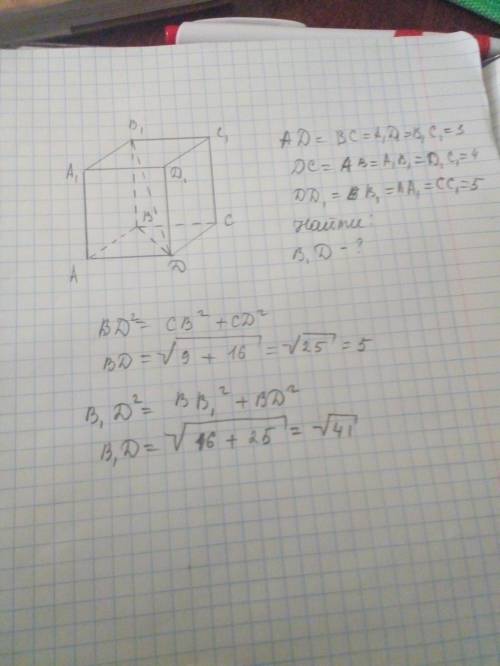 B₁
C₁
A₁
D₁
B
C
A
D
AD = BC = A₁D₁ = B₁C₁ = 3
DC = AB = A₁B₁ = D₁C₁ = 4
DD₁ = BB₁ = AA₁ = CC₁ = 5
Найти:
B₁D - ?
BD² = CB² + CD²
BD = √9 + 16 = √25 = 5
B₁D² = BB₁² + BD²
B₁D = √16 + 25 = √41